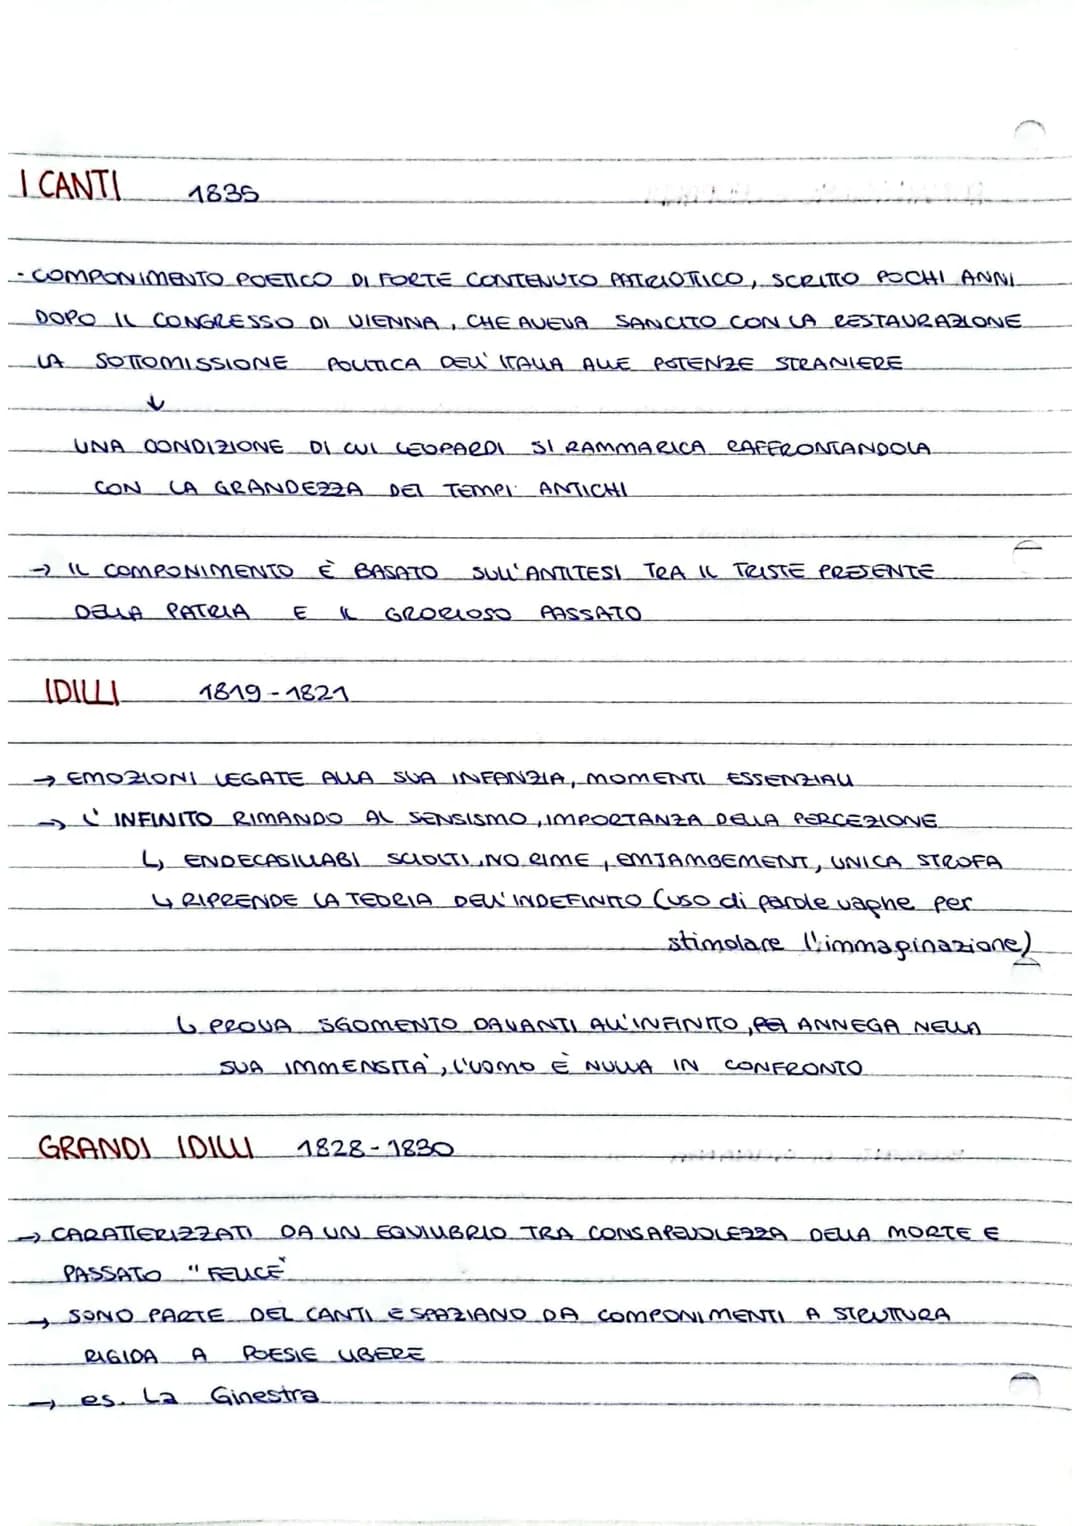 I CANTI 1835
- COMPONIMENTO POETICO DI FORTE CONTENUTO PATRIOTTICO, SCRITTO POCHI ANNI
DOPO IL CONGRESSO DI VIENNA, CHE AVEVA SANCITO CON LA RESTAURAZIONE
LA SOTTOMISSIONE POLITICA DELL'ITALIA ALLE POTENZE STRANIERE
↓
UNA CONDIZIONE DI CUI LEOPARDI SI RAMMARICA RAFFRONTANDOLA
CON LA GRANDEZZA DEI TEMPI ANTICHI
→ IL COMPONIMENTO È BASATO SULL'ANTITESI TRA IL TRISTE PRESENTE
DELLA PATRIA E IL GRORIOSO PASSATO
IDILLI 1819-1821
→ EMOZIONI LEGATE ALLA SUA INFANZIA, MOMENTI ESSENZIALI
→ L'INFINITO RIMANDO AL SENSISMO, IMPORTANZA DELLA PERCEZIONE
↳ ENDECASILLABI SCIOLTI, NO RIME, EMJAMBEMENT, UNICA STROFA
↳ RIPRENDE LA TEORIA DELL'INDEFINITO (uso di parole vaghe per
stimolare l'immaginazione)
↳ PROVA SGOMENTO DAVANTI ALL'INFINITO, ANNEGA NELLA
SUA IMMENSITÀ, L'UOMO È NULLA IN CONFRONTO
GRANDI IDILLI 1828-1830
→ CARATTERIZZATI DA UN EQUILIBRIO TRA CONSAPEVOLEZZA DELLA MORTE E
PASSATO "FELICE"
→ SONO PARTE DEI CANTI E SPAZIANO DA COMPONIMENTI A STRUTTURA
RIGIDA A POESIE LIBERE
→ es. La Ginestra